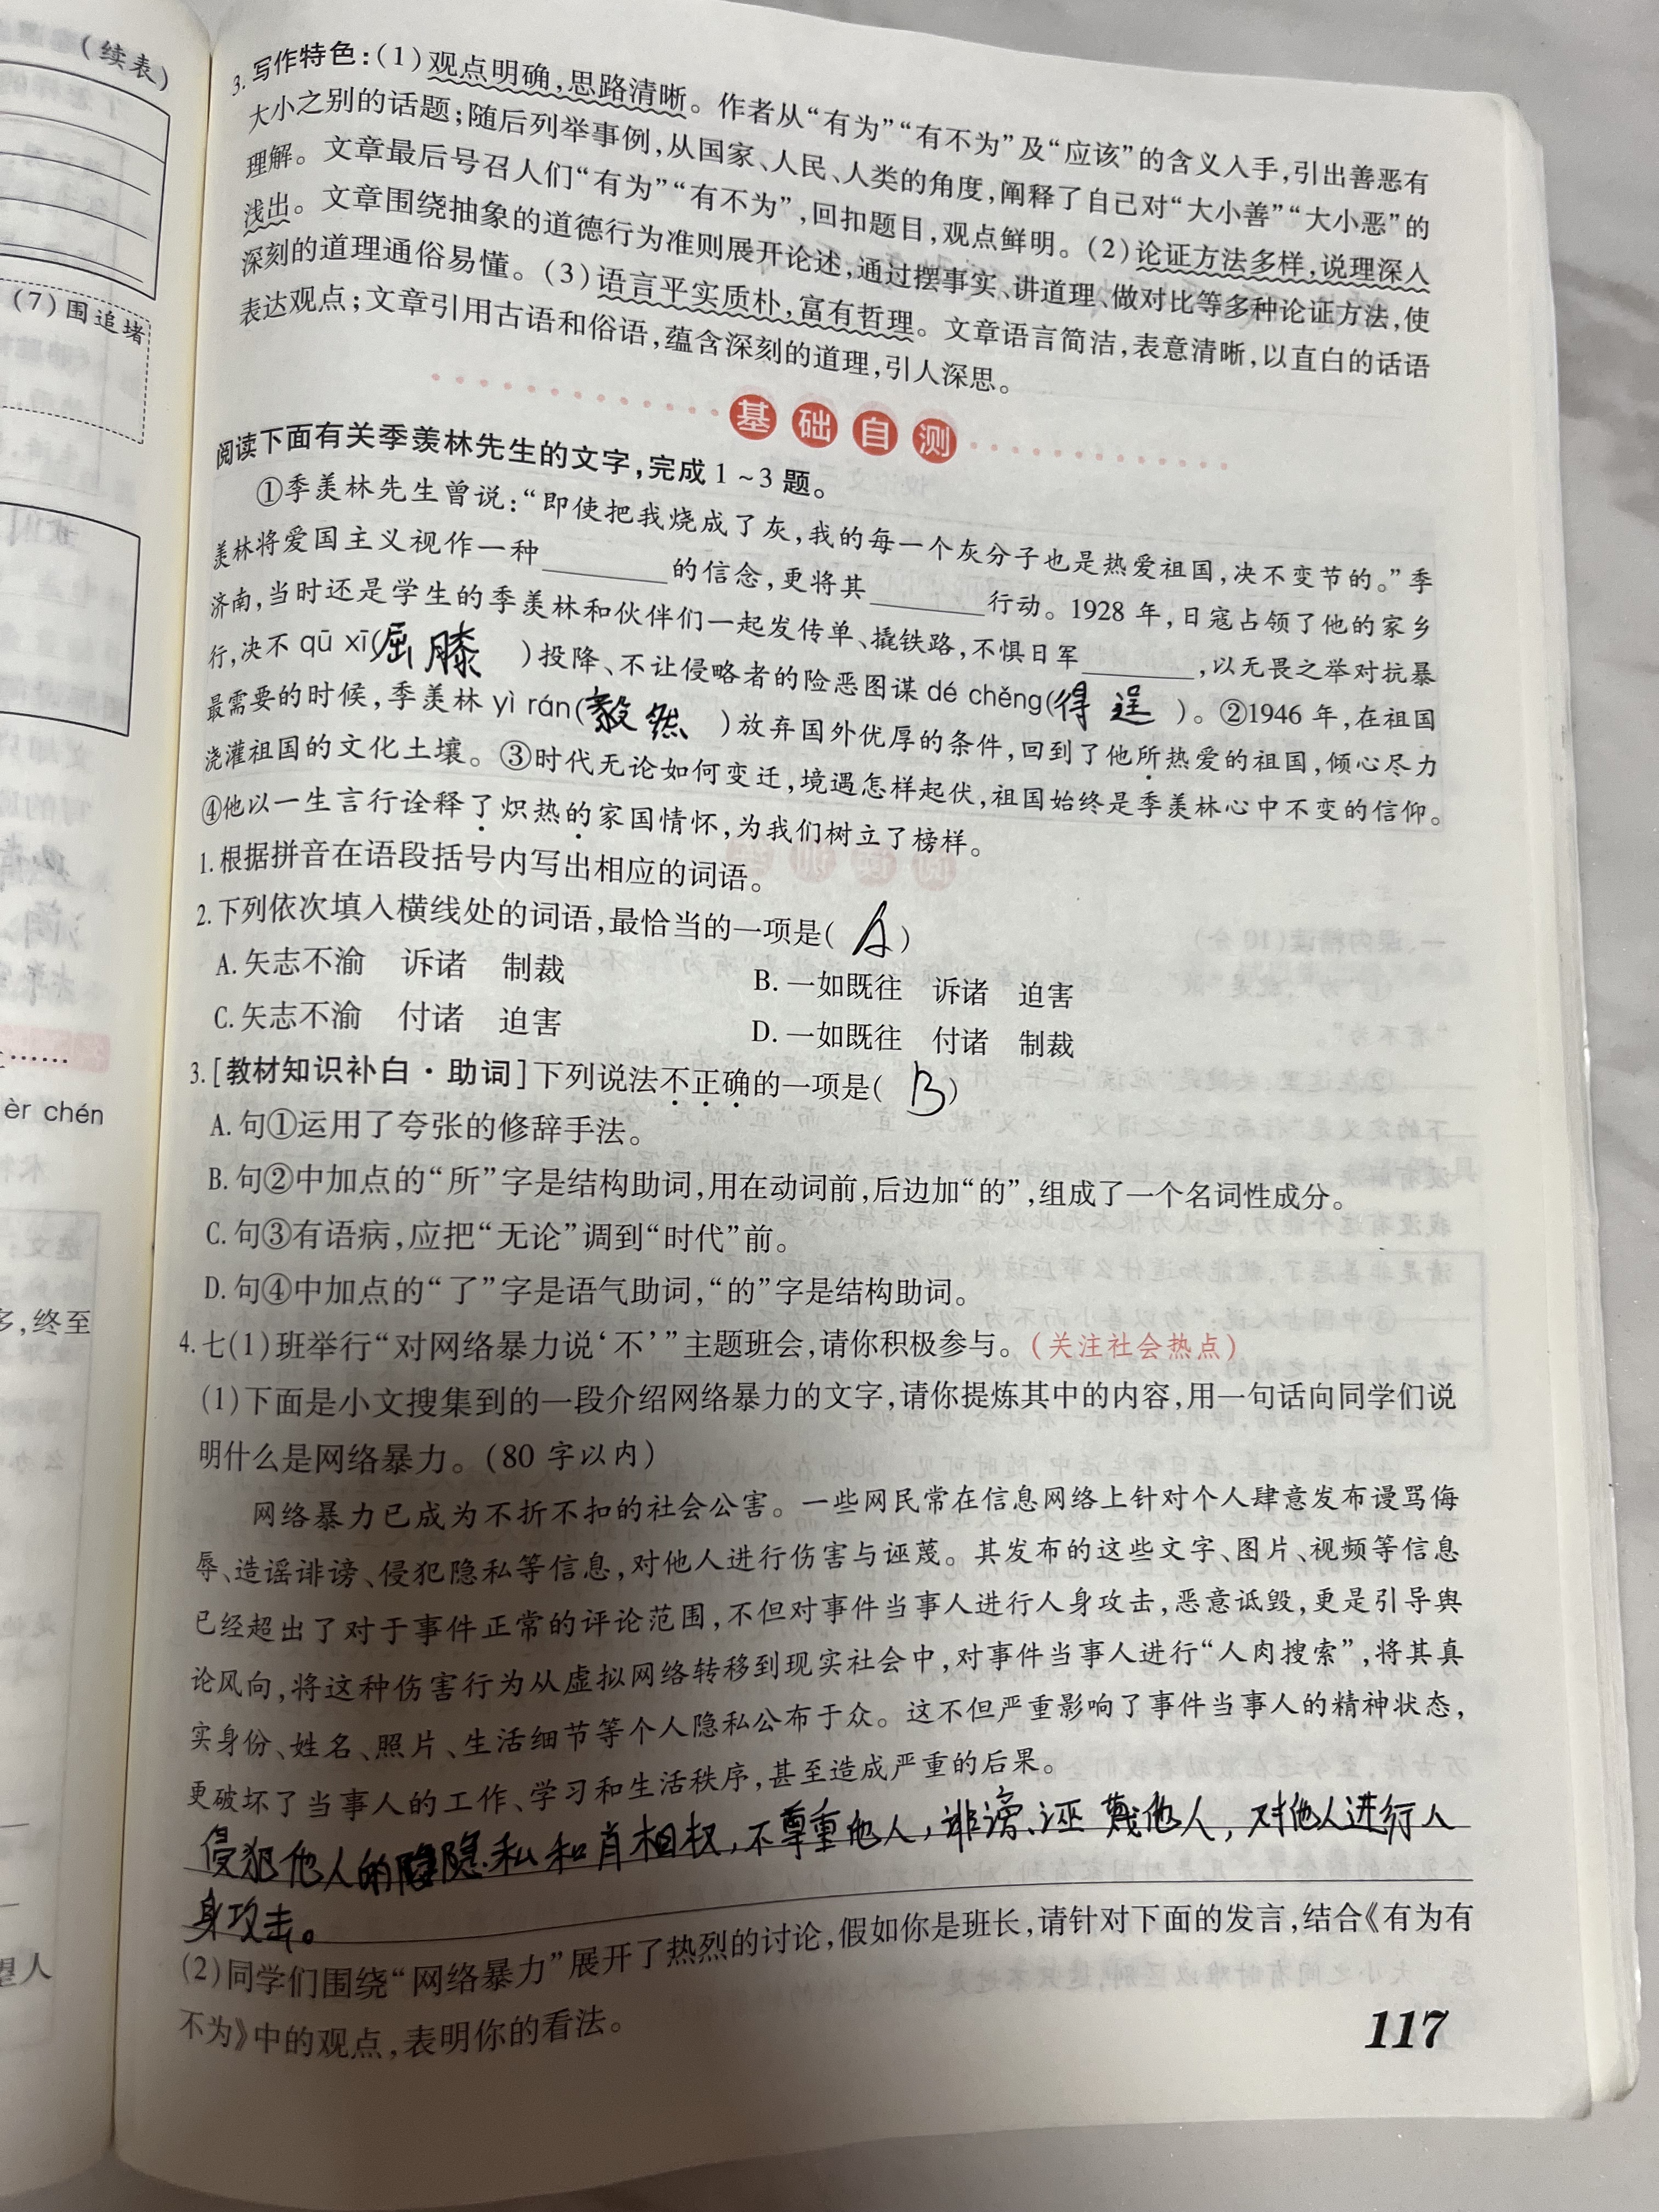 (续表)
(7)围追堵
èr chén
多,终至
望人
3.写作特色:(1)观点明确,思路清晰。作者从“有为”“有不为”及“应该”的含义入手,引出善恶有
大小之别的话题;随后列举事例,从国家、人民、人类的角度,阐释了自己对“大小善”“大小恶”的
理解。文章最后号召人们“有为”“有不为”,回扣题目,观点鲜明。(2)论证方法多样,说理深入
浅出。文章围绕抽象的道德行为准则展开论述,通过摆事实、讲道理、做对比等多种论证方法,使
深刻的道理通俗易懂。(3)语言平实质朴,富有哲理。文章语言简洁,表意清晰,以直白的话语
表达观点;文章引用古语和俗语,蕴含深刻的道理,引人深思。
基础自测
阅读下面有关季羡林先生的文字,完成1~3题。
①季羡林先生曾说:“即使把我烧成了灰,我的每一个灰分子也是热爱祖国,决不变节的。”季
羡林将爱国主义视作一种________的信念,更将其________行动。1928年,日寇占领了他的家乡
济南,当时还是学生的季羡林和伙伴们一起发传单、撬铁路,不惧日军________,以无畏之举对抗暴
行,决不qū xī(屈膝)投降、不让侵略者的险恶图谋dé chěng(得逞)。②1946年,在祖国
最需要的时候,季羡林yì rán(毅然)放弃国外优厚的条件,回到了他所热爱的祖国,倾心尽力
浇灌祖国的文化土壤。③时代无论如何变迁,境遇怎样起伏,祖国始终是季羡林心中不变的信仰。
④他以一生言行诠释了炽热的家国情怀,为我们树立了榜样。
1.根据拼音在语段括号内写出相应的词语。
2.下列依次填入横线处的词语,最恰当的一项是(A)
A.矢志不渝 诉诸 制裁 B.一如既往 诉诸 迫害
C.矢志不渝 付诸 迫害 D.一如既往 付诸 制裁
3.[教材知识补白·助词]下列说法不正确的一项是(B)
A.句①运用了夸张的修辞手法。
B.句②中加点的“所”字是结构助词,用在动词前,后边加“的”,组成了一个名词性成分。
C.句③有语病,应把“无论”调到“时代”前。
D.句④中加点的“了”字是语气助词,“的”字是结构助词。
4.七(1)班举行“对网络暴力说‘不’”主题班会,请你积极参与。(关注社会热点)
(1)下面是小文搜集到的一段介绍网络暴力的文字,请你提炼其中的内容,用一句话向同学们说
明什么是网络暴力。(80字以内)
网络暴力已成为不折不扣的社会公害。一些网民常在信息网络上针对个人肆意发布谩骂侮
辱、造谣诽谤、侵犯隐私等信息,对他人进行伤害与诬蔑。其发布的这些文字、图片、视频等信息
已经超出了对于事件正常的评论范围,不但对事件当事人进行人身攻击,恶意诋毁,更是引导舆
论风向,将这种伤害行为从虚拟网络转移到现实社会中,对事件当事人进行“人肉搜索”,将其真
实身份、姓名、照片、生活细节等个人隐私公布于众。这不但严重影响了事件当事人的精神状态,
更破坏了当事人的工作、学习和生活秩序,甚至造成严重的后果。
侵犯他人的隐私和肖相权,不尊重他人,诽谤、诬蔑他人,对他人进行人
身攻击。
(2)同学们围绕“网络暴力”展开了热烈的讨论,假如你是班长,请针对下面的发言,结合《有为有
不为》中的观点,表明你的看法。
117